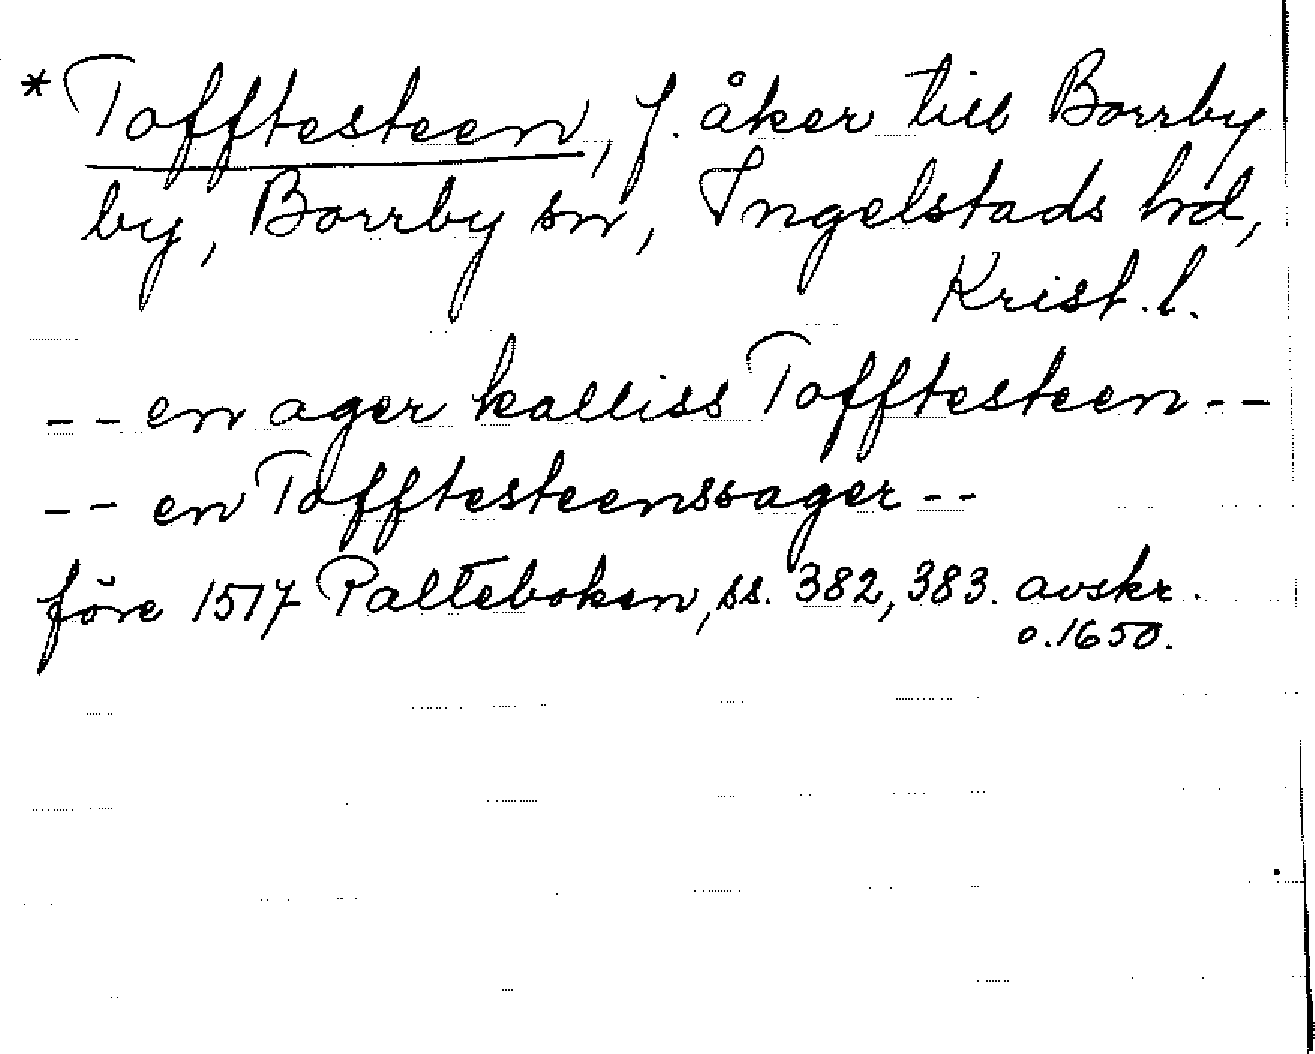 * Tofftesteen, f. åker till Borrby
by, Borrby sn, Ingelstads hd,
Krist. l.
-- en ager kalliss Tofftesteen --
-- en Tofftesteenssager --
före 1517 Palteboken, ss. 382, 383. avskr.
o. 1650.